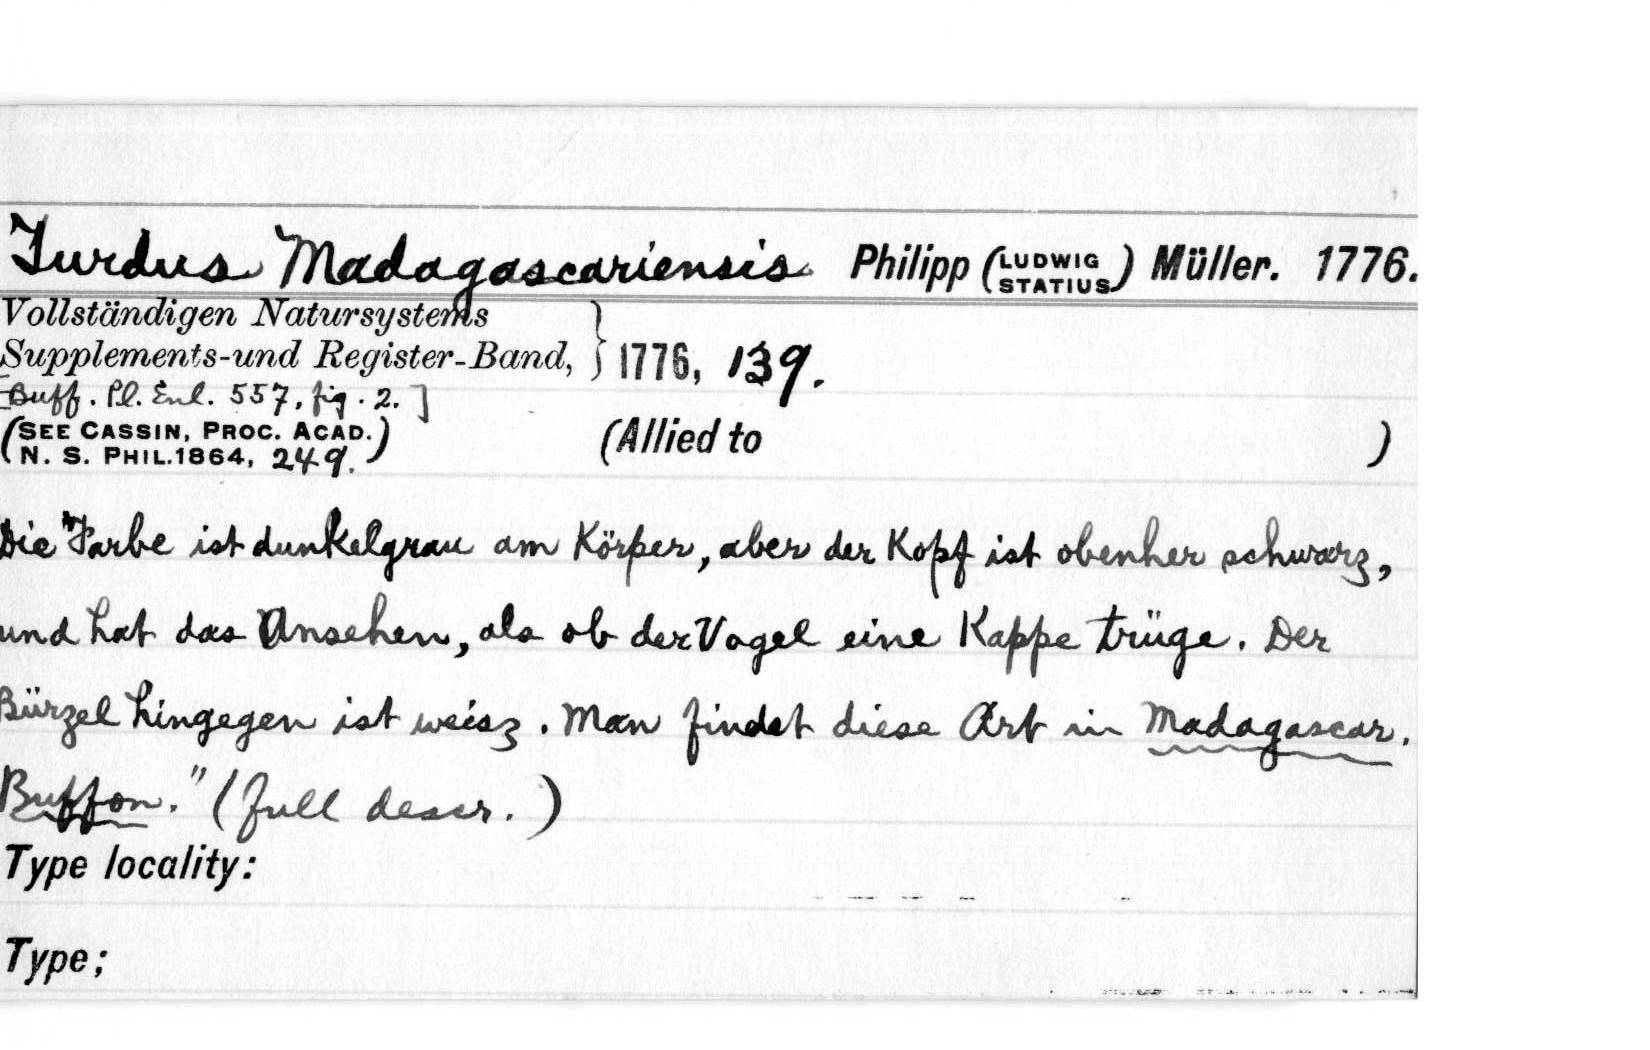 Turdus Madagascariensis Philipp (LUDWIG STATIUS) Müller. 1776.
Vollständigen Natursystems
Supplements-und Register-Band, } 1776, 139.
[Buff. Pl. Enl. 557, fig. 2.]
(SEE CASSIN, PROC. ACAD.
N. S. PHIL. 1864, 249.) (Allied to )
Die "Farbe ist dunkelgrau am Körper, aber der Kopf ist obenher schwarz,
und hat das Ansehen, als ob der Vogel eine Kappe trüge. Der
Bürzel hingegen ist weisz. Man findet diese Art in Madagascar.
Buffon." (full descr.)
Type locality:
Type;